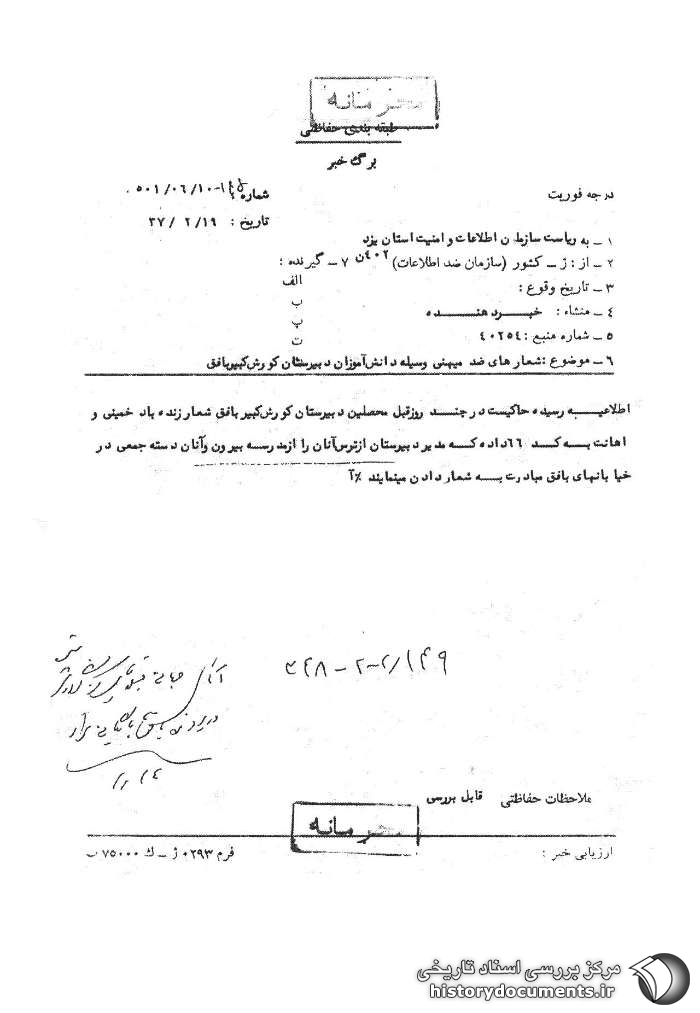 محرمانه
طبقه بندی حفاظتی
برگ خبر
درجه فوریت
شماره : ۵۰۱/۰۶/۱۰-
تاریخ : ۳۷/ ۲/۱۹
۱ – به ریاست سازمان اطلاعات و امنیت استان یزد
۲ – از : ژ – کشور (سازمان ضد اطلاعات) ۴۰۲ن ۷ – گیرنده :
۳ – تاریخ وقوع : الف
ب
۴ – منشاء : خبر دهنده
پ
۵ – شماره منبع : ۴۰۲۵۴
ت
۶ – موضوع : شعار های ضد میهنی وسیله دانش‌آموزان دبیرستان کورش‌کبیر بافق
اطلاعیه رسیده حاکیست در چند روز قبل محصلین دبیرستان کورش‌کبیر بافق شعار زنده باد خمینی و
اهانت به کد ۶۶ داده که مدیر دبیرستان از ترس آنان را از مدرسه بیرون و آنان دسته جمعی در
خیابانهای بافق مبادرت به شعار دادن مینمایند ٪آ
آقای
ملاحظات حفاظتی قابل بررسی
محرمانه
ارزیابی خبر :
فرم ۰۲۹۳ ژ – ک ۷۵۰۰۰ ب
مرکز بررسی اسناد تاریخی
historydocuments.ir